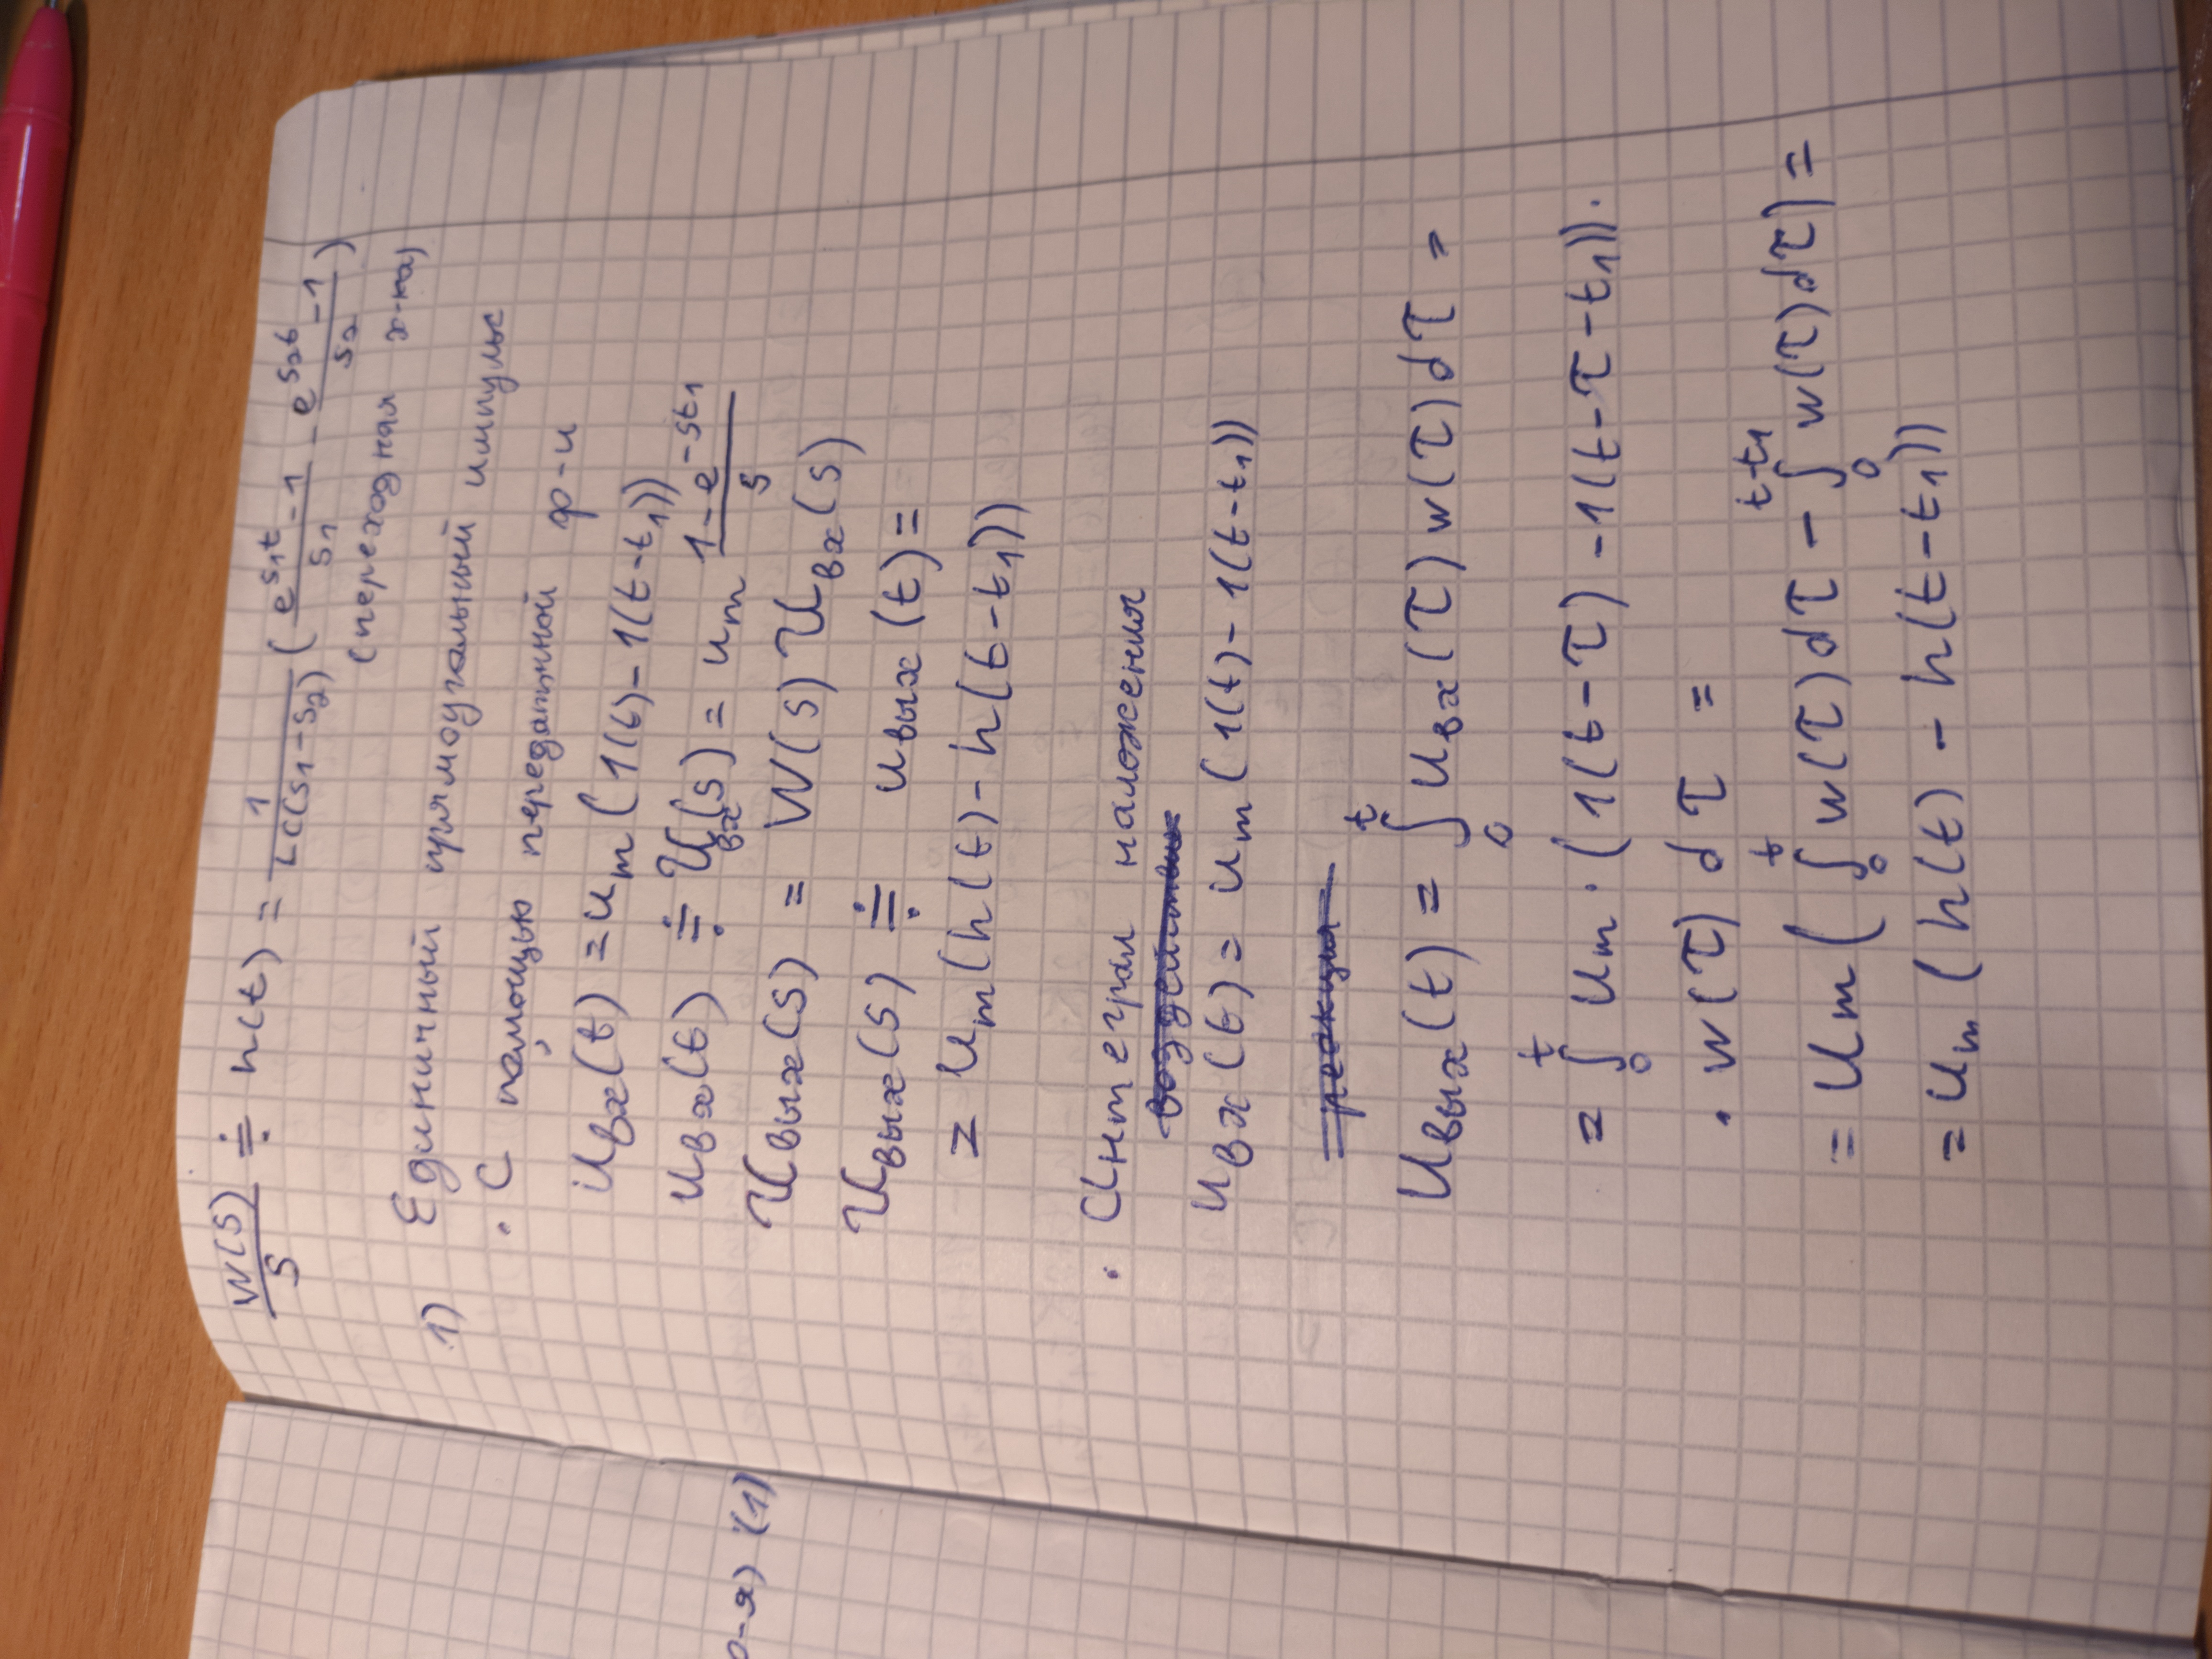 W(S)/S ≑ h(t) = 1/(LC(s₁-s₂)) ( (e^(s₁t) - 1)/s₁ - (e^(s₂t) - 1)/s₂ )
(переходная х-ка)
1) Единичный прямоугольный импульс
· С помощью передаточной ф-и
u_вх(t) = u_m (1(t) - 1(t-t₁))
u_вх(t) ≑ U_вх(s) = u_m (1 - e^(-st₁))/s
U_вых(s) = W(s) U_вх(s)
U_вых(s) ≑ u_вых(t) =
= u_m(h(t) - h(t-t₁))
· Интеграл наложения
воздействие
u_вх(t) = u_m (1(t) - 1(t-t₁))
реакция
u_вых(t) = ∫₀^t u_вх(τ) w(τ) dτ =
= ∫₀^t u_m · (1(t-τ) - 1(t-τ-t₁)) ·
· w(τ) dτ =
= u_m ( ∫₀^t w(τ) dτ - ∫₀^(t-t₁) w(τ) dτ ) =
= u_m (h(t) - h(t-t₁))
о-я) (1)